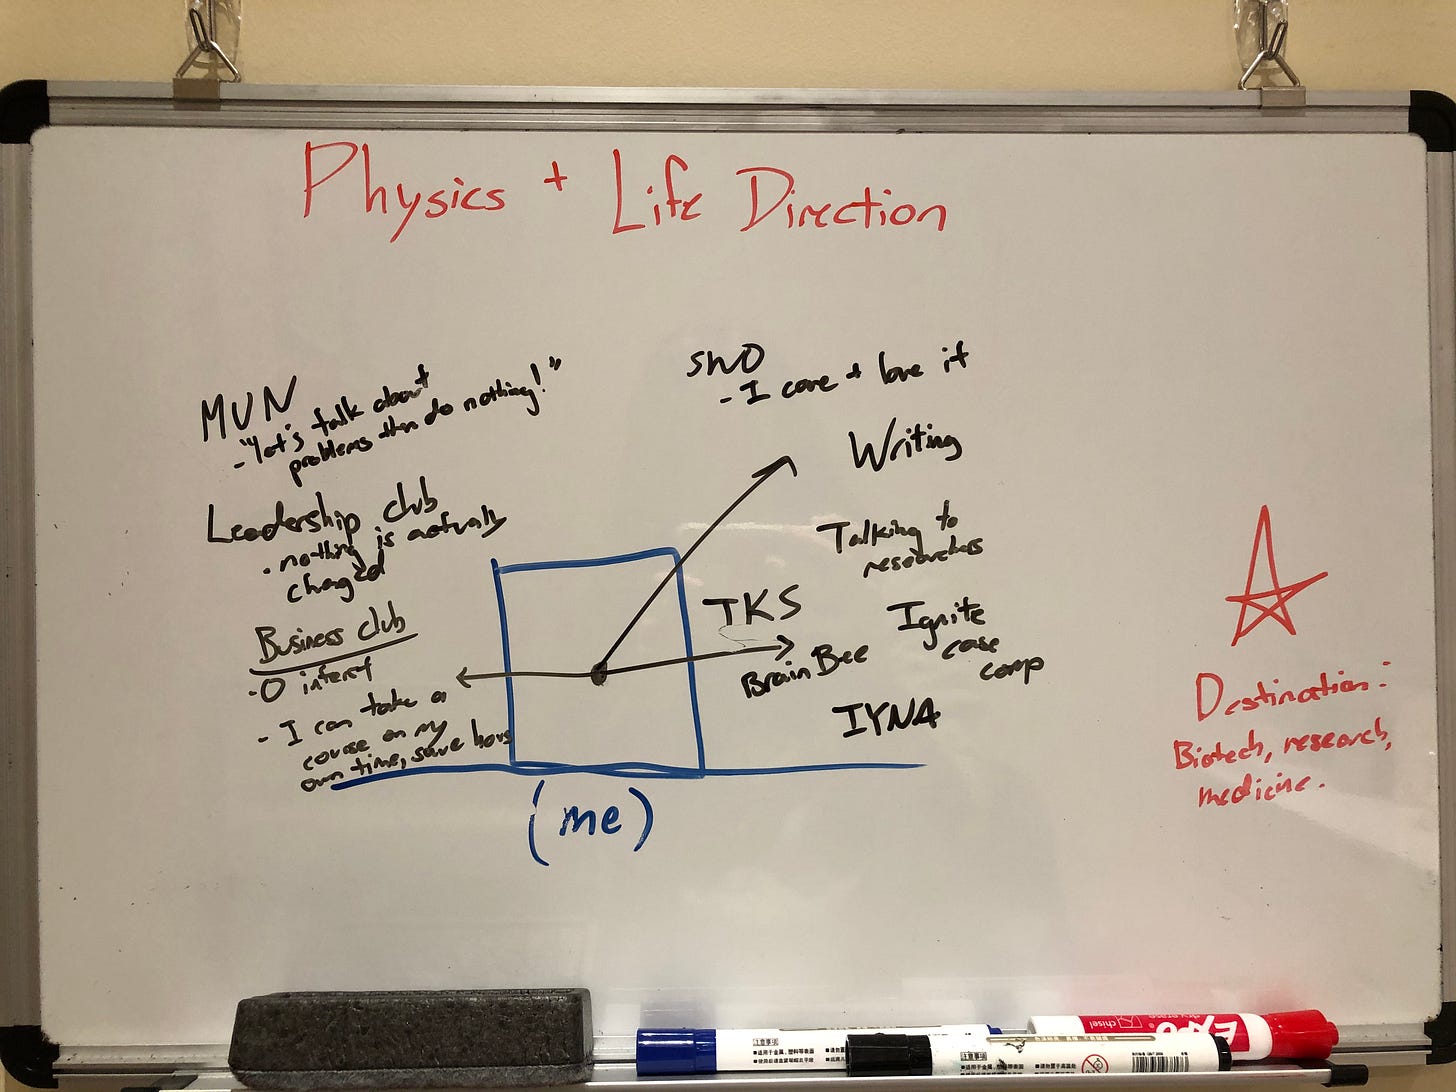 Physics + Life Direction
MUN
- "Let's talk about
problems then do nothing!"
Leadership club
. nothing is actually
changed
Business club
- 0 interest
- I can take a
course on my
own time, save hours
SNO
- I care + love it
Writing
Talking to
researchers
TKS
Ignite
case
comp
Brain Bee
IYNA
(me)
Destination:
Biotech, research,
medicine.
EXPO
chisel
注意事项
注意事项